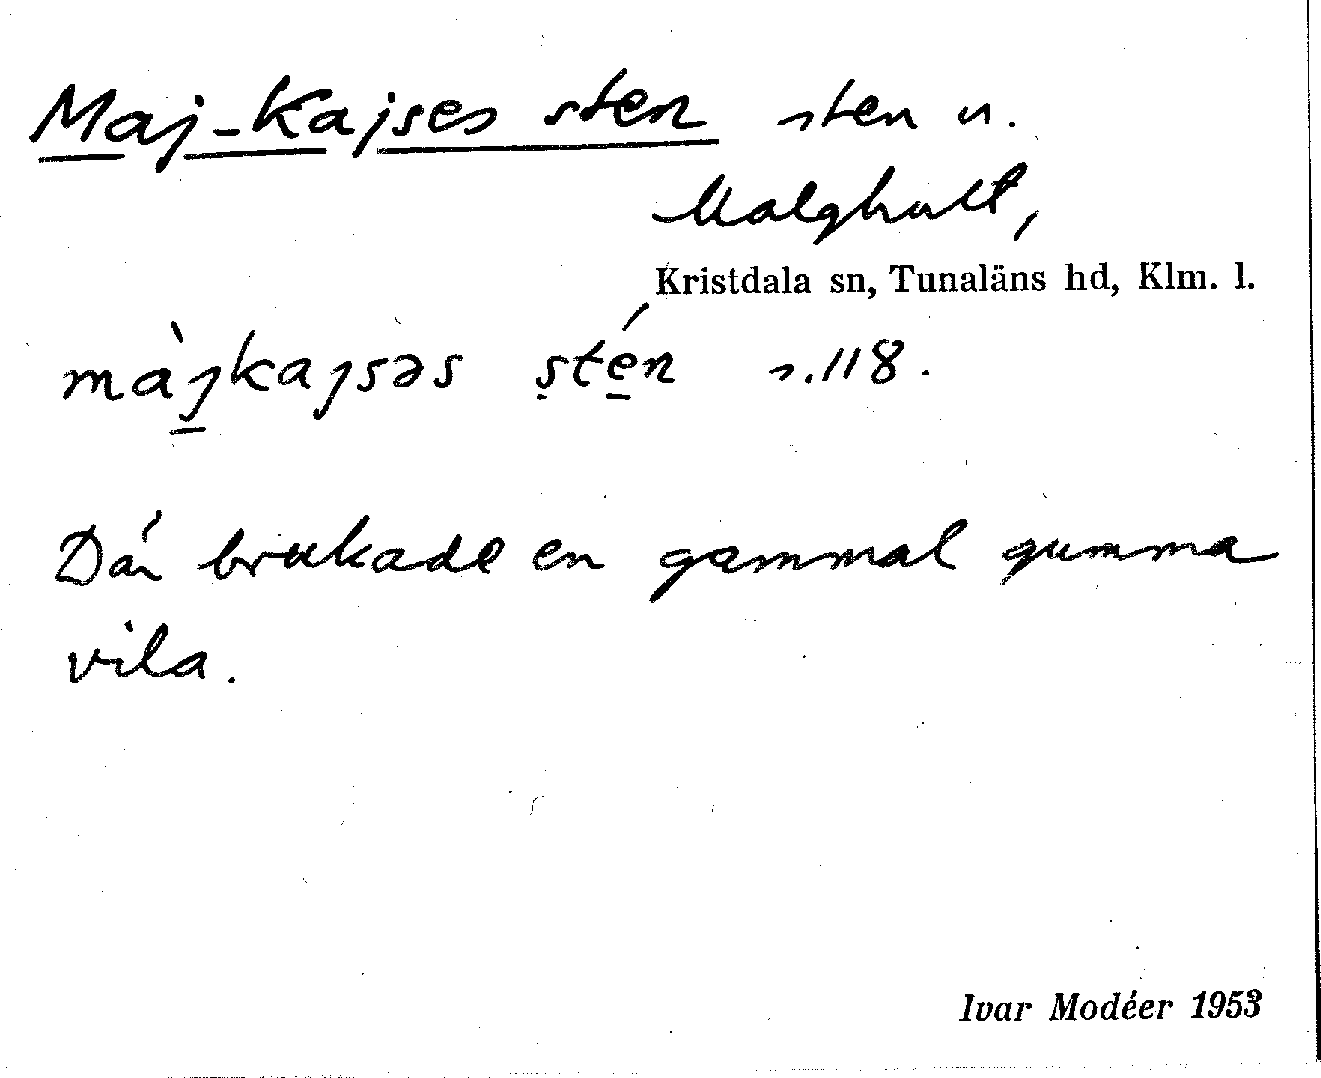 Maj-Kajses sten sten n.
Malghult,
Kristdala sn, Tunaläns hd, Klm. l.
màjkajsəs stén s.118.
Där brukade en gammal gumma
vila.
Ivar Modéer 1953